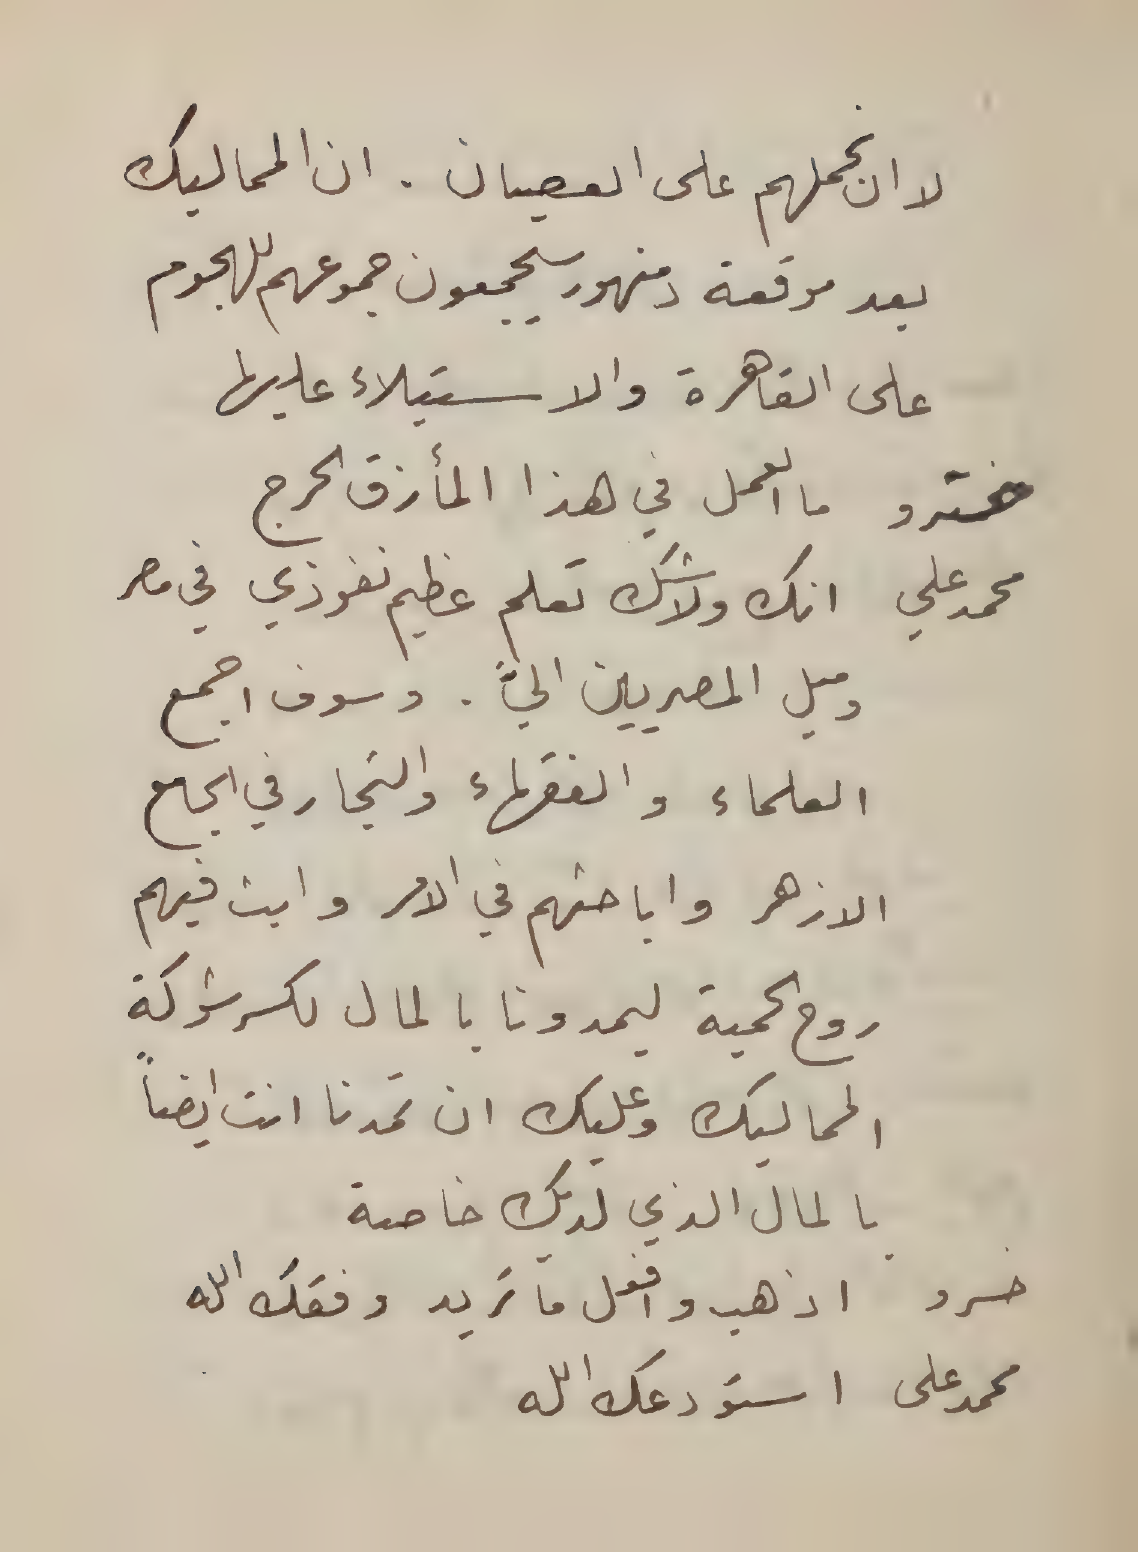 لا ان نحملهم على العصيان . ان المماليك
بعد موقعة دمنهور سيجمعون جموعهم للهجوم
على القاهرة والاستيلاء عليها
خسرو ما العمل في هذا المأزق الحرج
محمد علي انك ولا شك تعلم عظيم نفوذي في مصر
وميل المصريين اليَّ . وسوف اجمع
العلماء والفقهاء والتجار في الجامع
الازهر واباحثهم في الامر وابث فيهم
روح الحمية ليمدونا بالمال لكسر شوكة
المماليك وعليك ان تمدنا انت ايضاً
بالمال الذي لديك خاصة
خسرو اذهب وافعل ما تريد وفقك الله
محمد على استودعك الله